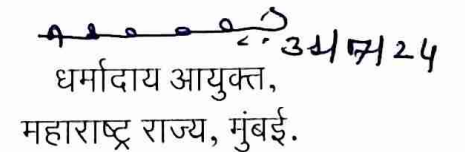 धर्मादाय आयुक्त,
महाराष्ट्र राज्य, मुंबई.